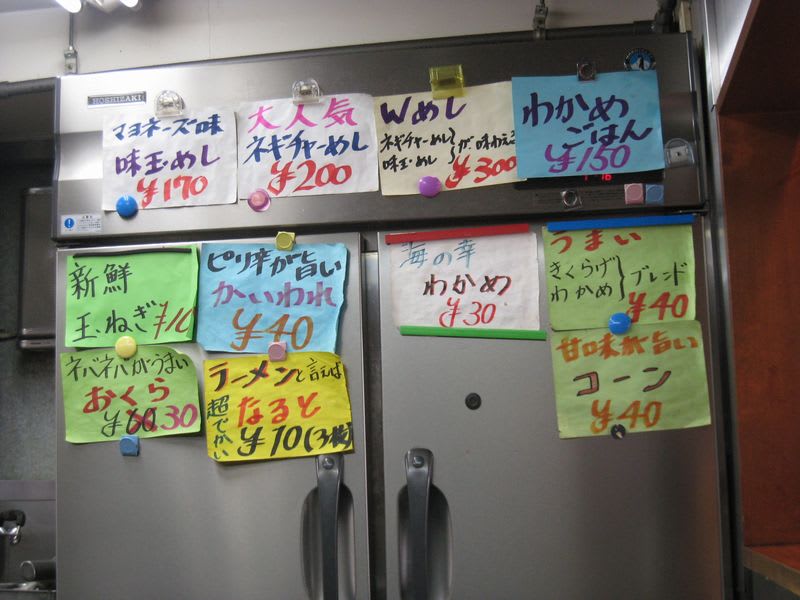 HOSHIZAKI
マヨネーズ味
味玉・めし
¥170
大人気
ネギチャーめし
¥200
Wめし
ネギチャーめし
味玉・めし
が味わえる
¥300
わかめ
ごはん
¥150
新鮮
玉ねぎ ¥10
ピリ辛が旨い
かいわれ
¥40
海の幸
わかめ
¥30
うまい
きくらげ
わかめ
ブレンド
¥40
ネバネバがうまい
おくら
¥60 30
ラーメンと言えば
超でかい
なると
¥10(3枚)
甘味が旨い
コーン
¥40